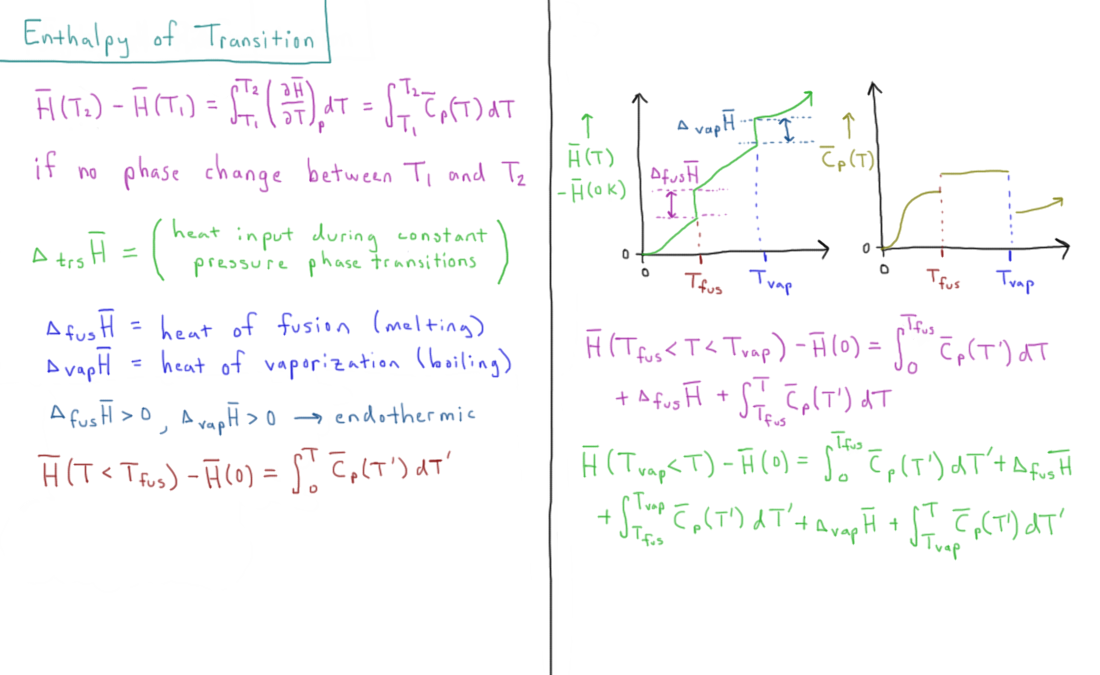 Enthalpy of Transition
H̄(T₂) − H̄(T₁) = ∫_{T₁}^{T₂} (∂H̄/∂T)_p dT = ∫_{T₁}^{T₂} C̄_p(T) dT
if no phase change between T₁ and T₂
Δ_trs H̄ = (heat input during constant
pressure phase transitions)
Δ_fus H̄ = heat of fusion (melting)
Δ_vap H̄ = heat of vaporization (boiling)
Δ_fus H̄ > 0, Δ_vap H̄ > 0 → endothermic
H̄(T < T_fus) − H̄(0) = ∫_0^T C̄_p(T') dT'
↑
H̄(T)
−H̄(0K)
Δ_vap H̄
Δ_fus H̄
0
0
T_fus
T_vap
↑
C̄_p(T)
0
0
T_fus
T_vap
H̄(T_fus < T < T_vap) − H̄(0) = ∫_0^{T_fus} C̄_p(T') dT
+ Δ_fus H̄ + ∫_{T_fus}^T C̄_p(T') dT
H̄(T_vap < T) − H̄(0) = ∫_0^{T_fus} C̄_p(T') dT' + Δ_fus H̄
+ ∫_{T_fus}^{T_vap} C̄_p(T') dT' + Δ_vap H̄ + ∫_{T_vap}^T C̄_p(T') dT'